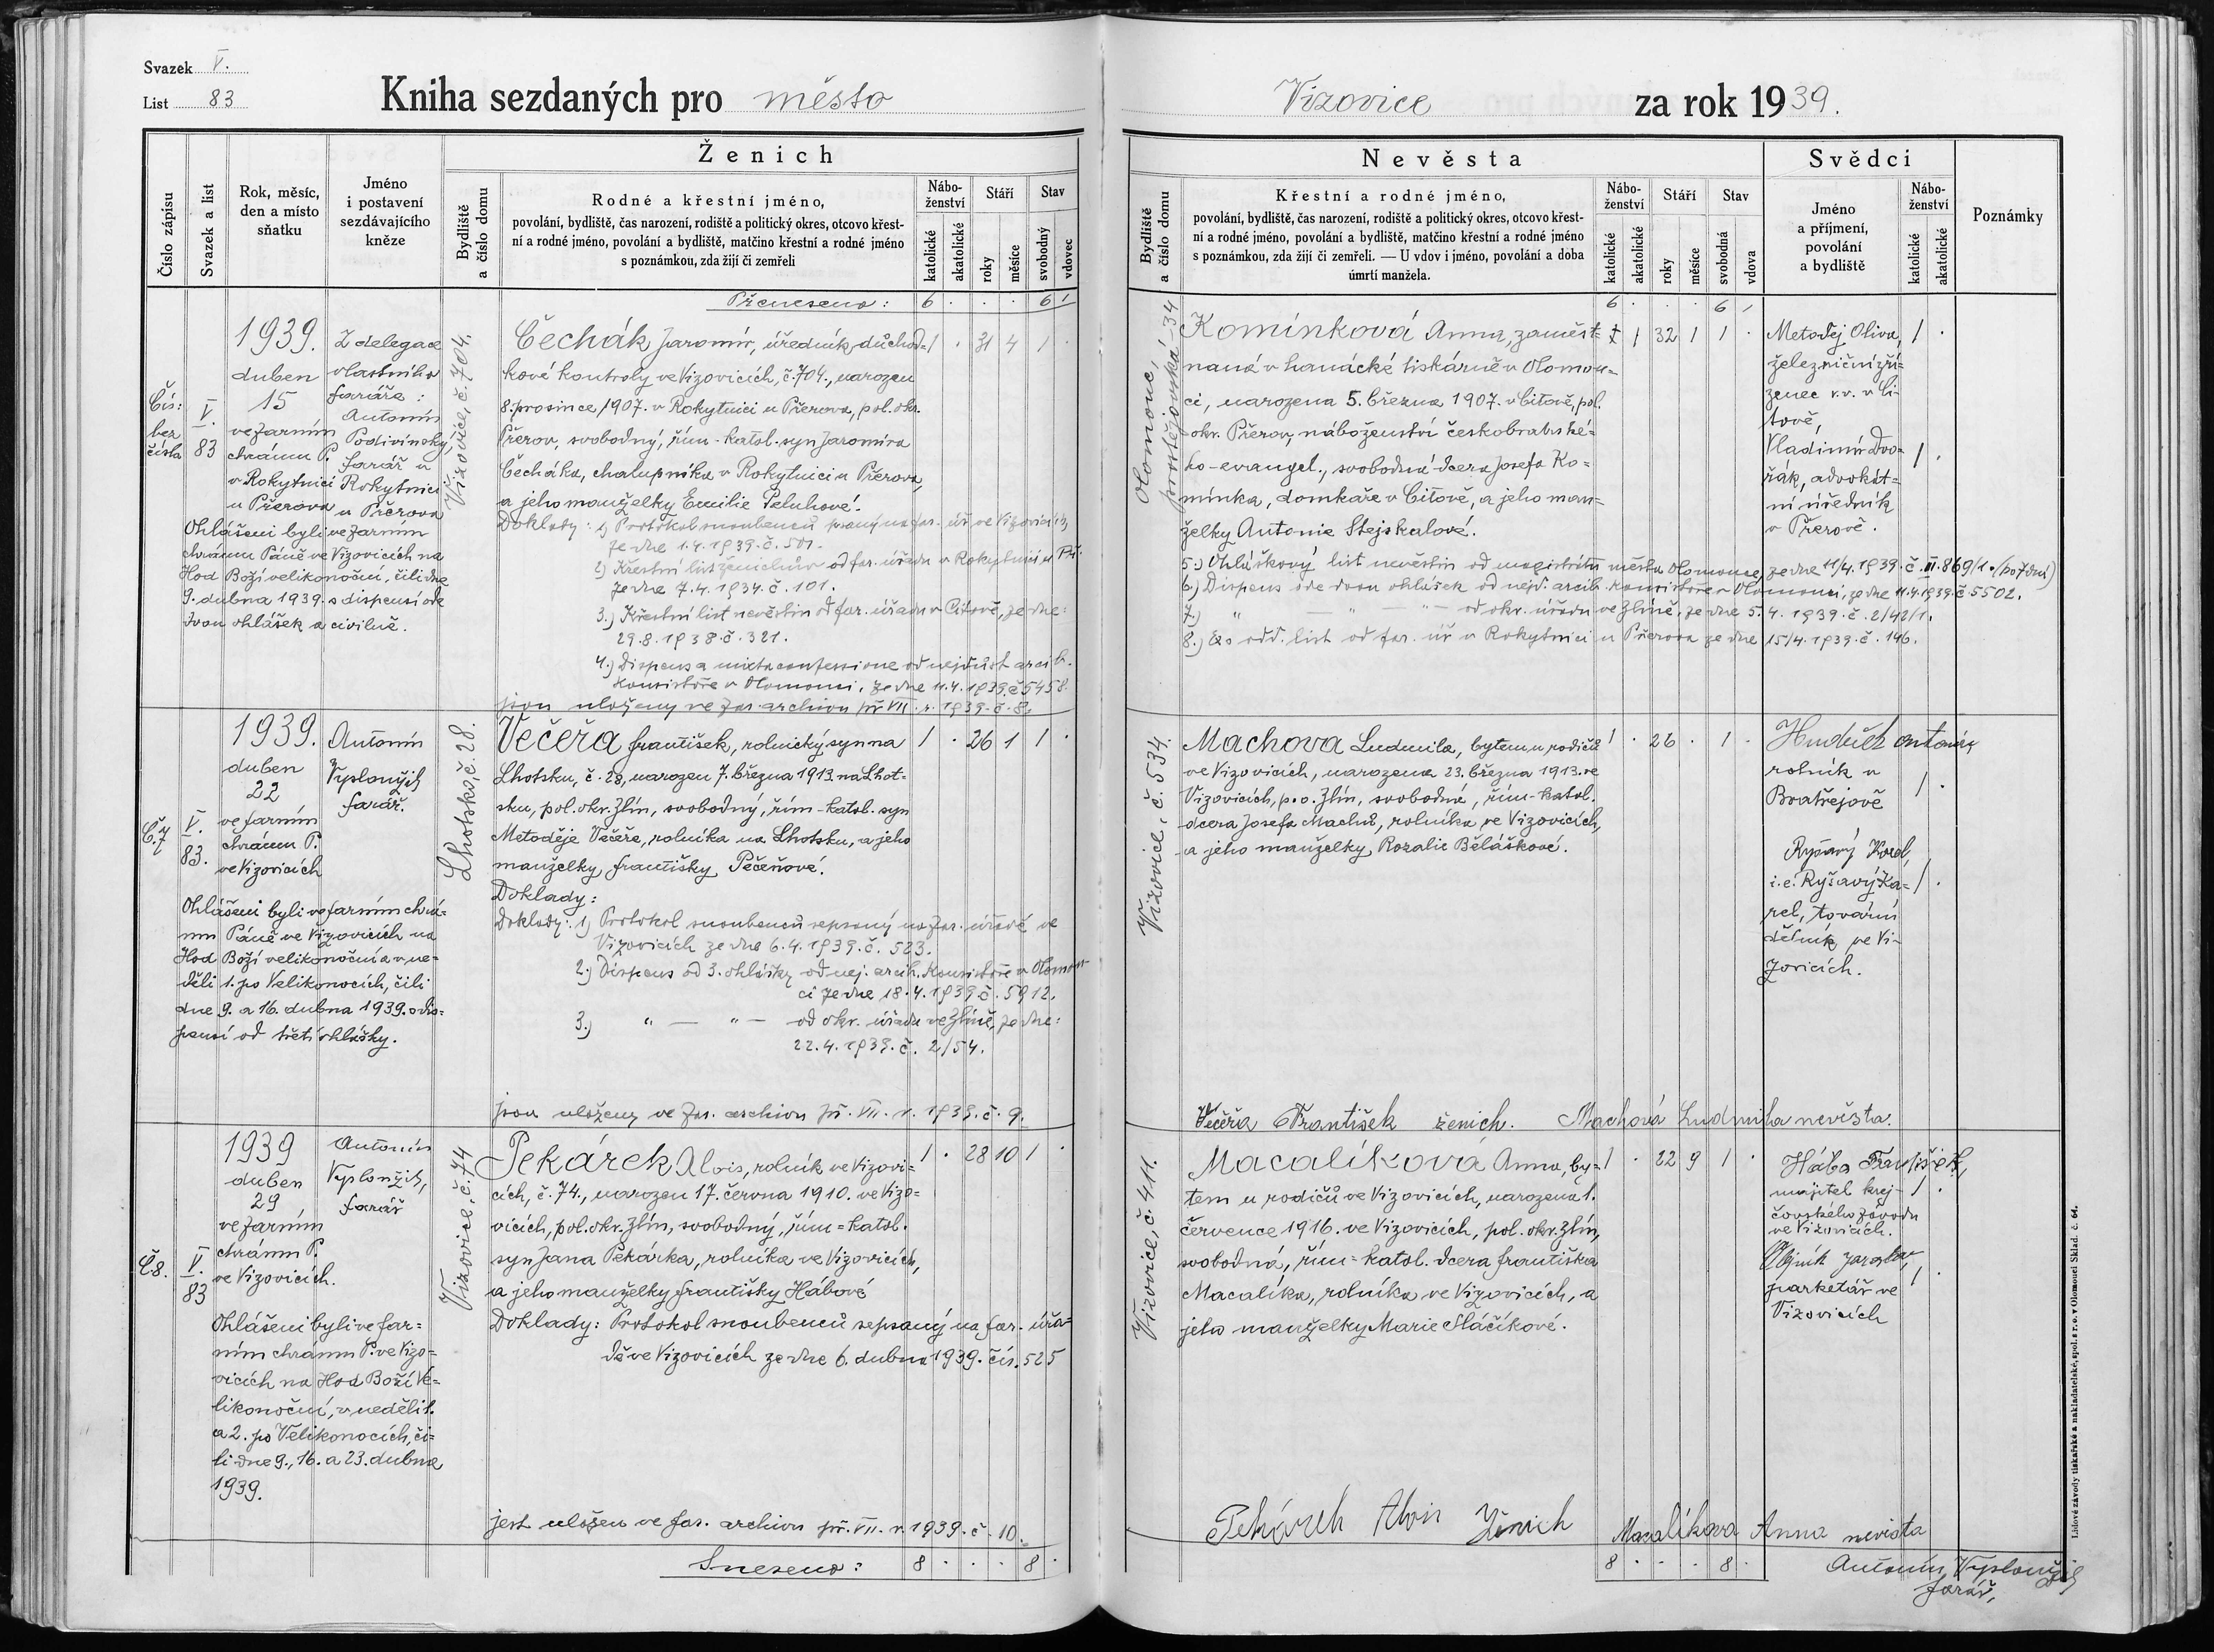 Svazek V.
List 83
Kniha sezdaných pro město
Vizovice
za rok 1939.
Ženich
Číslo zápisu
Svazek a list
Rok, měsíc,
den a místo
sňatku
Jméno
i postavení
sezdávajícího
kněze
Bydliště
a číslo domu
Rodné a křestní jméno,
povolání, bydliště, čas narození, rodiště a politický okres, otcovo křest-
ní a rodné jméno, povolání a bydliště, matčino křestní a rodné jméno
s poznámkou, zda žijí či zemřeli
Nábo-
ženství
katolické
akatolické
Stáří
roky
měsíce
Stav
svobodný
vdovec
Přeneseno: 6 . . . 6 /
Čís:
bez
čísla
V.
83
1939.
duben
15
ve farním
chrámu P.
v Rokytnici
u Přerova
Z delegace
vlastního
faráře:
Antonín
Podivínský,
farář v
Rokytnici
u Přerova
Ohlášeni byli ve farním
chrámu Páně ve Vizovicích na
Hod Boží velikonoční, čili dne
9. dubna 1939. s dispensí ode
dvou ohlášek a civilně.
Vizovice, č. 704.
Čechák Jaromír, úředník důchod= 1 . 31 4 1 .
kové kontroly ve Vizovicích, č. 704., narozen
8. prosince 1907. v Rokytnici u Přerova, pol. okr.
Přerov, svobodný, řím-katol. syn Jaromíra
Čecháka, chalupníka v Rokytnici u Přerova,
a jeho manželky Emilie Peluhové.
Doklady: 1) Protokol snoubenců psaný na far. úř. ve Vizovicích,
ze dne 1.4.1939. č. 501.
2) Křestní list ženichův od far. úřadu v Rokytnici u Př.
ze dne 7.4.1934. č. 101.
3.) Křestní list nevěstin od far. úřadu v Citově, ze dne:
29.8.1938. č. 321.
4.) Dispens a mixta confessione od nejdůst. arcib.
konsistoře v Olomouci, ze dne 11.4.1939. č. 5458.
jsou uloženy ve far. archivu př. VII. r. 1939. č. 8.
Č. 7
V.
83.
1939.
duben
22
ve farním
chrámu P.
ve Vizovicích
Antonín
Vyplonžil
farář.
Ohlášeni byli ve farním chrá-
mu Páně ve Vizovicích na
Hod Boží velikonoční a v ne-
děli 1. po Velikonocích, čili
dne 9. a 16. dubna 1939. s dis-
pensí od třetí ohlášky.
Lhotsko, č. 28.
Večeřa František, rolnický syn na 1 . 26 1 1 .
Lhotsku, č. 28, narozen 7. března 1913. na Lhot-
sku, pol. okr. Zlín, svobodný, řím-katol. syn
Metoděje Večeře, rolníka na Lhotsku, a jeho
manželky Františky Pečeňové.
Doklady:
Doklady: 1) Protokol snoubenců sepsaný na far. úřadě ve
Vizovicích ze dne 6.4.1939. č. 523.
2.) Dispens od 3. ohlášky od nej. arcib. konsistoře v Olomou-
ci ze dne 18.4.1939 č. 5912.
3.) " — " — od okr. úřadu ve Zlíně, ze dne:
22.4.1939. č. 2/54.
jsou uloženy ve far. archivu př. VII. r. 1939. č. 9.
Č. 8.
V.
83
1939
duben
29
ve farním
chrámu P.
ve Vizovicích.
Antonín
Vyplonžil,
farář
Ohlášeni byli ve far-
ním chrámu P. ve Vizo-
vicích na Hod Boží Ve-
likonoční, v neděli 1.
a 2. po Velikonocích, či-
li dne 9., 16. a 23. dubna
1939.
Vizovice, č. 74
Pekárek Alois, rolník ve Vizovi- 1 . 28 10 1 .
cích, č. 74., narozen 17. června 1910. ve Vizo-
vicích, pol. okr. Zlín, svobodný, řím=katol.
syn Jana Pekárka, rolníka ve Vizovicích,
a jeho manželky Františky Hábové
Doklady: Protokol snoubenců sepsaný na far. úřa-
dě ve Vizovicích ze dne 6. dubna 1939. čís. 525
jest uložen ve far. archivu př. VII. r. 1939. č. 10.
Sneseno: 8 . . . 8 .
Nevěsta
Bydliště
a číslo domu
Křestní a rodné jméno,
povolání, bydliště, čas narození, rodiště a politický okres, otcovo křest-
ní a rodné jméno, povolání a bydliště, matčino křestní a rodné jméno
s poznámkou, zda žijí či zemřeli. — U vdov i jméno, povolání a doba
úmrtí manžela.
Nábo-
ženství
katolické
akatolické
Stáří
roky
měsíce
Stav
svobodná
vdova
Svědci
Jméno
a příjmení,
povolání
a bydliště
Nábo-
ženství
katolické
akatolické
Poznámky
6 . . . 6 /
Olomouc,
prostějovská 34
Komínková Anna, zaměst= 1 32 1 1 .
naná v hanácké tiskárně v Olomou=
ci, narozena 5. března 1907. v Citově, pol.
okr. Přerov, náboženství českobratrské=
ho-evangel., svobodná dcera Josefa Ko=
mínka, domkaře v Citově, a jeho man=
želky Antonie Stejskalové.
Metoděj Oliva, 1 .
železniční zří-
zenec v.v. v Ci-
tově,
Vladimír Dvo= 1 .
řák, advokát=
ní úředník
v Přerově.
5.) Ohláškový list nevěstin od magistrátu města Olomouce, ze dne 11/4.1939. č. III. 869/1.
6.) Dispens ode dvou ohlášek od nejd. arcib. konsistoře v Olomouci, ze dne 11.4.1939. č. 5502.
7.) " — " — " — od okr. úřadu ve Zlíně, ze dne 5.4.1939. č. 2/42/1.
8.) odd. list od far. úř. v Rokytnici u Přerova ze dne 15/4.1939. č. 146.
Vizovice, č. 534.
Machová Ludmila, bytem u rodičů 1 . 26 . 1 .
ve Vizovicích, narozena 23. března 1913. ve
Vizovicích, p.o. Zlín, svobodná, řím-katol.
dcera Josefa Machů, rolníka ve Vizovicích,
a jeho manželky Rozalie Běláškové.
rolník v
Bratřejově 1 .
Ryšavý Karel,
i.e. Ryšavý Ka= 1 .
rel, tovární
dělník ve Vi-
zovicích.
Večeřa František ženich. Machová Ludmila nevěsta.
Vizovice, č. 411.
Macalíková Anna, by= 1 . 22 9 1 .
tem u rodičů ve Vizovicích, narozena 1.
července 1916. ve Vizovicích, pol. okr. Zlín,
svobodná, řím=katol. dcera Františka
Macalíka, rolníka ve Vizovicích, a
jeho manželky Marie Sláčíkové.
Hába František,
majitel krej- 1 .
čovského závodu
ve Vizovicích.
Jaroslav
parketář ve 1 .
Vizovicích
Pekárek Alois Ženich Macalíkova Anna nevista
8 . . . 8 .
Antonín Vyplonžil
farář,
Lidové závody tiskařské a nakladatelské, spol. s r. o. v Olomouci Sklad. č. 64.